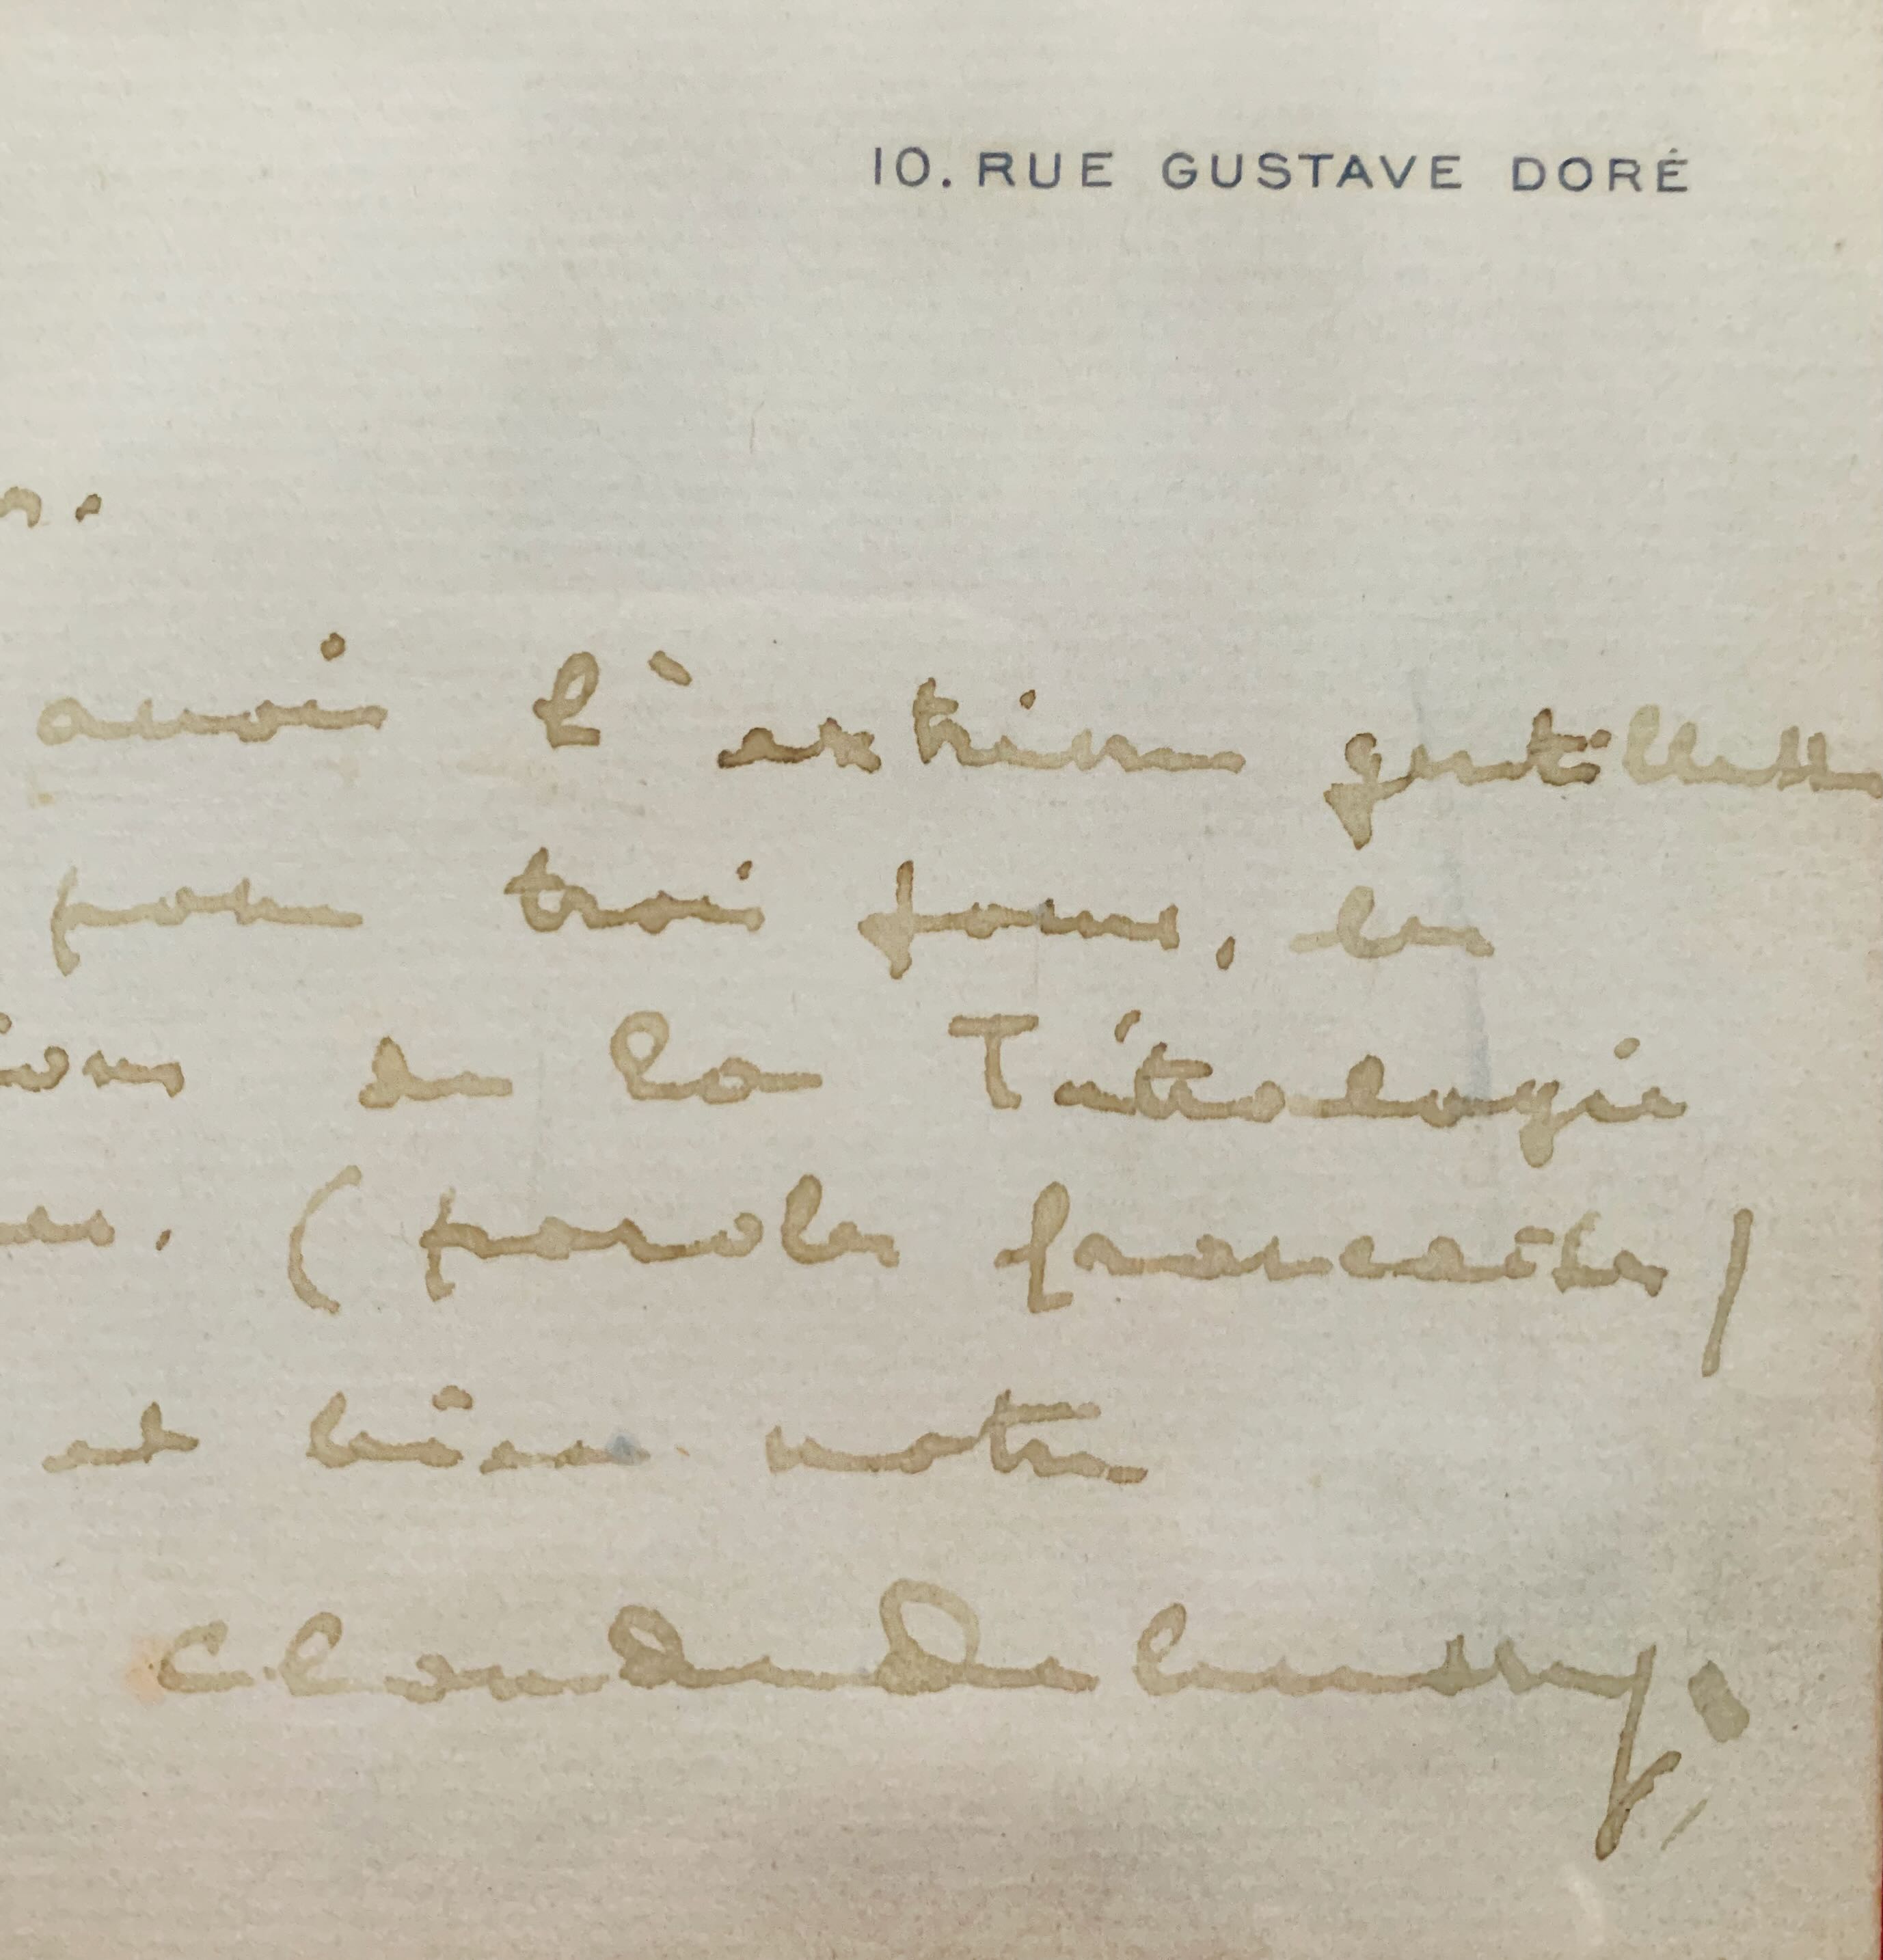 10. RUE GUSTAVE DORÉ
avoir l'extrême gentillesse
pour trois jours, les
ions de la Tétralogie
(paroles françaises)
et bien votre
Claude Debussy